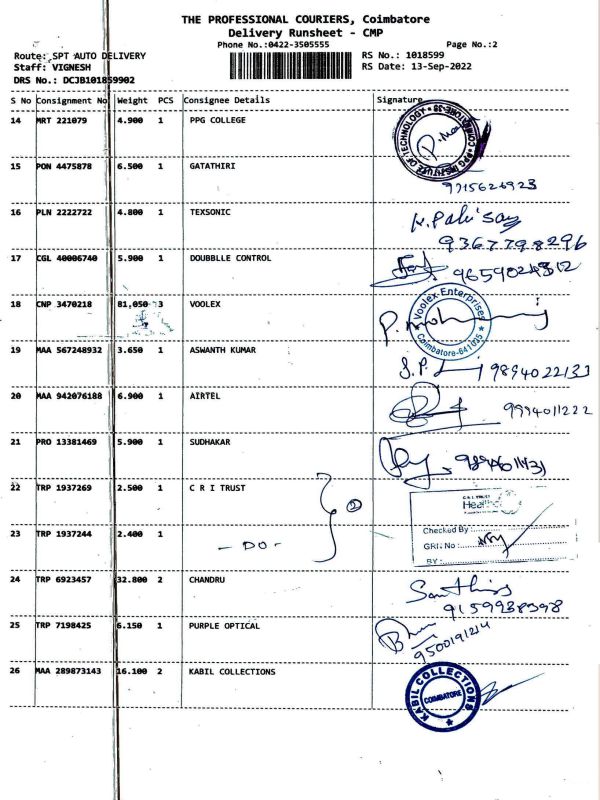 THE PROFESSIONAL COURIERS, Coimbatore
Delivery Runsheet - CMP
Phone No.:0422-3505555
Page No.:2
Route: SPT AUTO DELIVERY
RS No.: 1018599
Staff: VIGNESH
RS Date: 13-Sep-2022
DRS No.: DCJB101859902
S No Consignment No Weight PCS Consignee Details Signature
14 MRT 221079 4.900 1 PPG COLLEGE
PPG INSTITUTE OF TECHNOLOGY
15 PON 4475878 6.500 1 GATATHIRI
9715626923
16 PLN 2222722 4.800 1 TEXSONIC
9367798296
17 CGL 40006740 5.900 1 DOUBBLLE CONTROL
9659024312
18 CNP 3470218 81,050 3 VOOLEX
Voolex Enterprises
Coimbatore-641035
P.
19 MAA 567248932 3.650 1 ASWANTH KUMAR
S.P. 9894022133
20 MAA 942076188 6.900 1 AIRTEL
9994011222
21 PRO 13381469 5.900 1 SUDHAKAR
22 TRP 1937269 2.500 1 C R I TRUST
2
C.R.I. TRUST
Checked By:
23 TRP 1937244 2.400 1
- DO -
GRN No:
BY:
24 TRP 6923457 32.800 2 CHANDRU
9159938398
25 TRP 7198425 6.150 1 PURPLE OPTICAL
9500191214
26 MAA 289873143 16.100 2 KABIL COLLECTIONS
KABIL COLLECTIONS
COIMBATORE